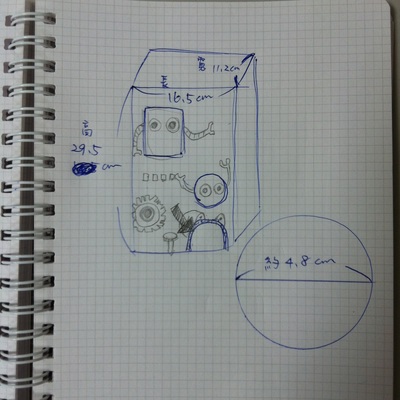 寬 11.2cm
長
16.5cm
高
29.5
cm
約 4.8 cm